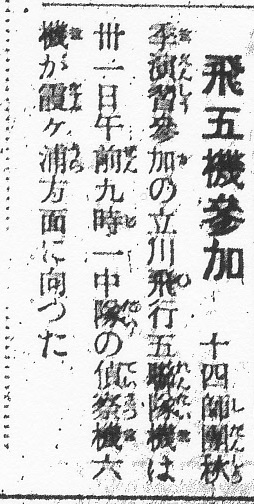 飛五機參加
十四師團秋
季演習參加の立川飛行五聯隊機は
卅一日午前九時一中隊の偵察機六
機が霞ヶ浦方面に向つた